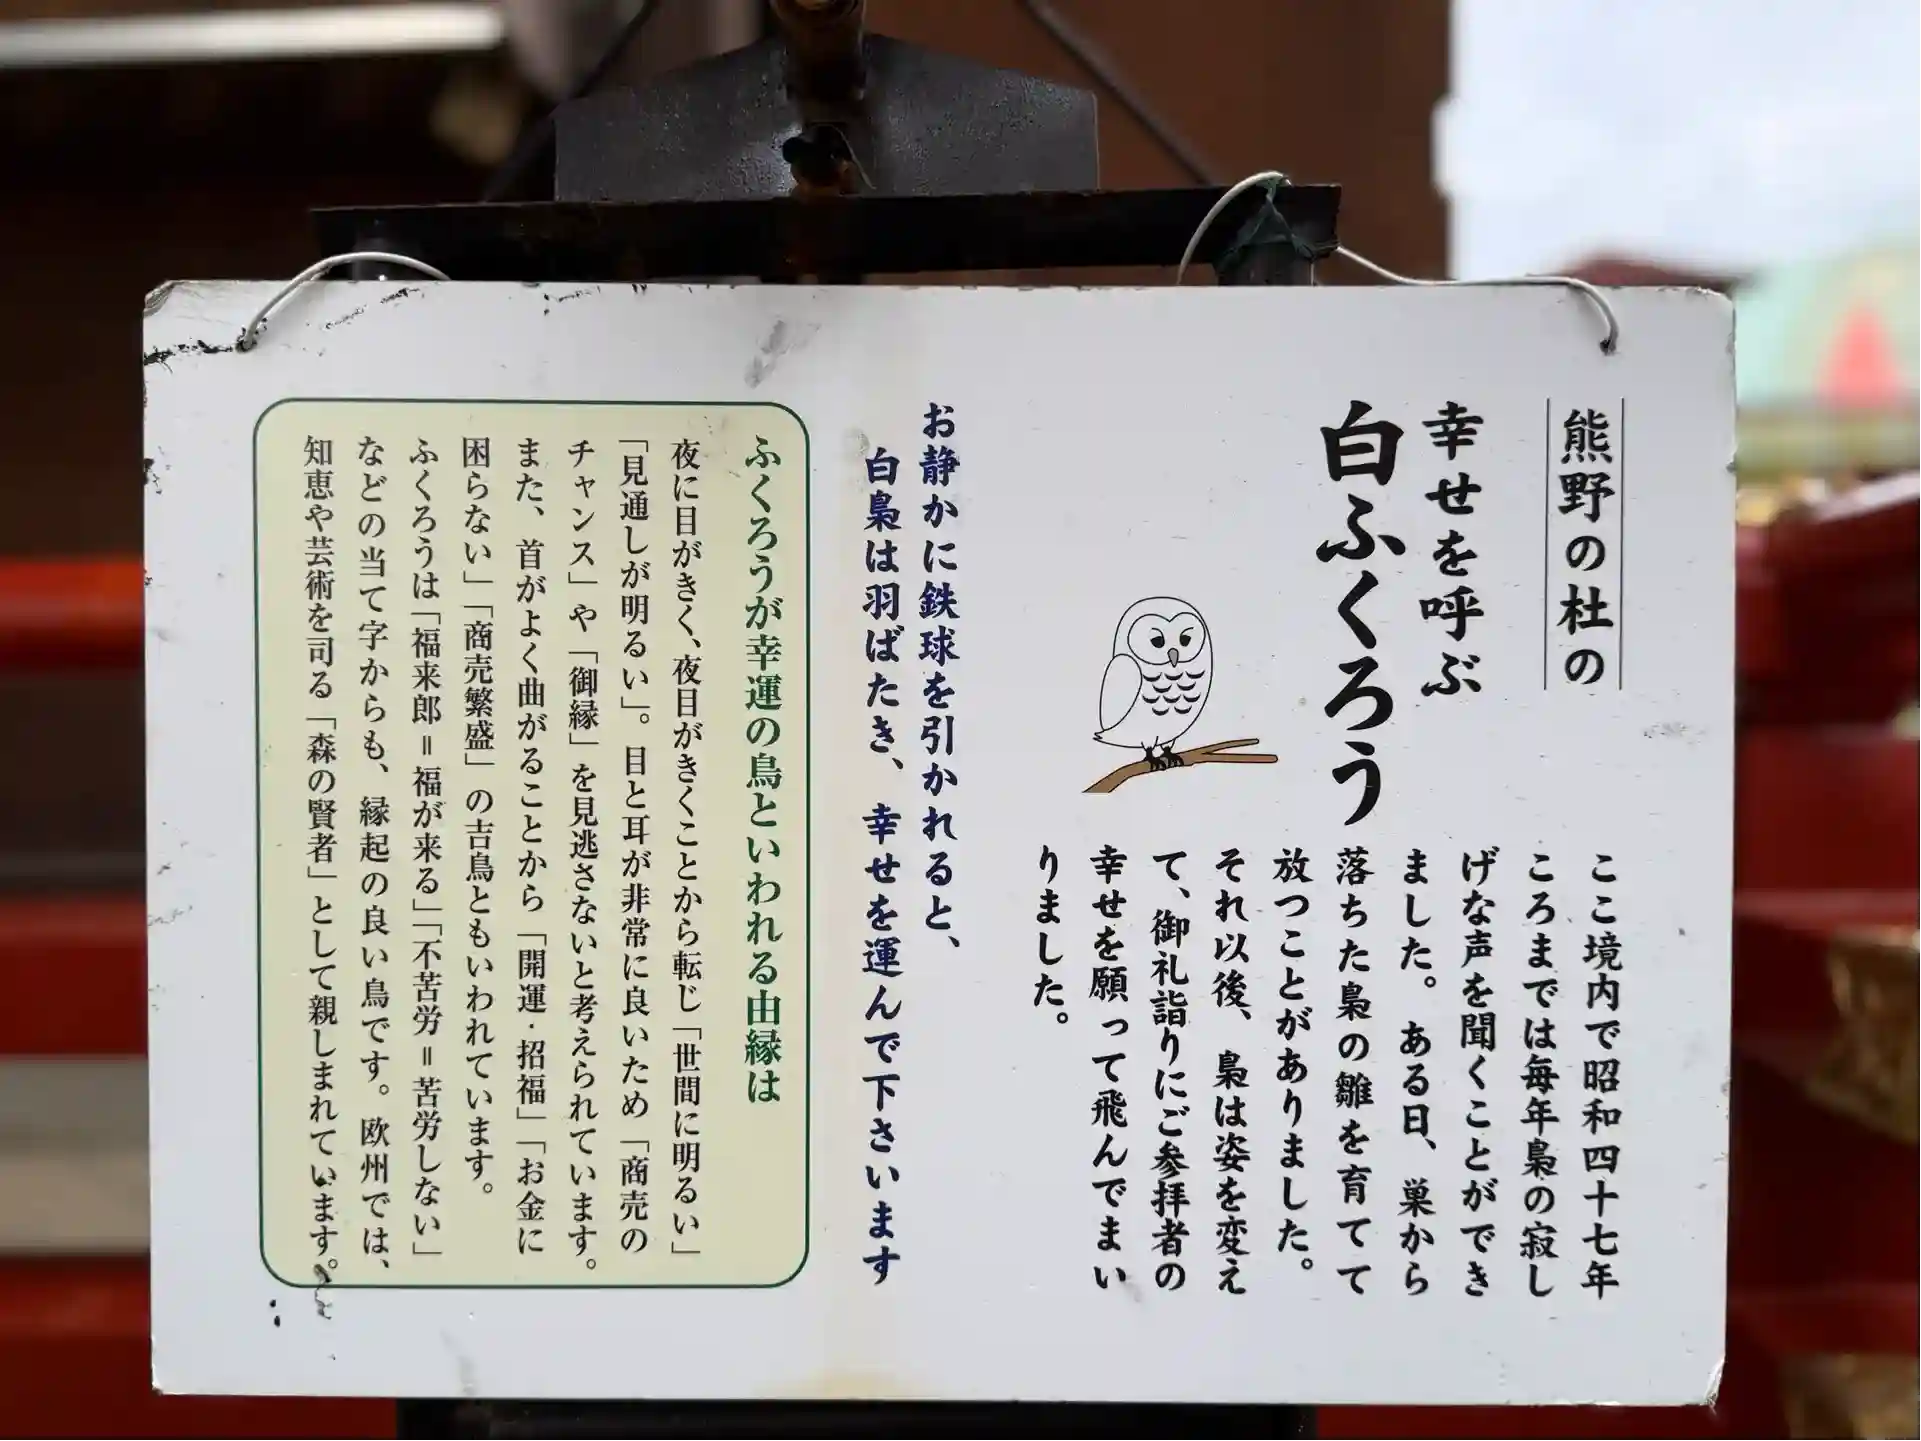 熊野の杜の
幸せを呼ぶ
白ふくろう
ここ境内で昭和四十七年
ころまでは毎年梟の寂し
げな声を聞くことができ
ました。ある日、巣から
落ちた梟の雛を育てて
放つことがありました。
それ以後、梟は姿を変え
て、御礼詣りにご参拝者の
幸せを願って飛んでまい
りました。
お静かに鉄球を引かれると、
白梟は羽ばたき、幸せを運んで下さいます
ふくろうが幸運の鳥といわれる由縁は
夜に目がきく、夜目がきくことから転じ「世間に明るい」
「見通しが明るい」。目と耳が非常に良いため「商売の
チャンス」や「御縁」を見逃さないと考えられています。
また、首がよく曲がることから「開運・招福」「お金に
困らない」「商売繁盛」の吉鳥ともいわれています。
ふくろうは「福来郎＝福が来る」「不苦労＝苦労しない」
などの当て字からも、縁起の良い鳥です。欧州では、
知恵や芸術を司る「森の賢者」として親しまれています。